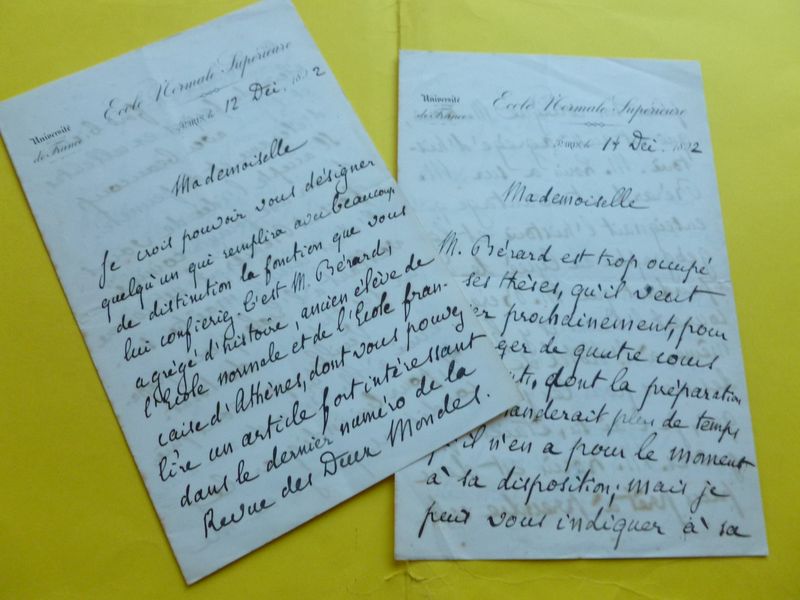 Ecole Normale Supérieure
Université
de France
Paris, le 12 Déc. 1892
Mademoiselle
Je crois pouvoir vous désigner
quelqu'un qui remplira avec beaucoup
de distinction la fonction que vous
lui confierez. C'est M. Bérard,
agrégé d'histoire, ancien élève de
l'Ecole normale et de l'Ecole fran-
çaise d'Athènes, dont vous pouvez
lire un article fort intéressant
dans le dernier numéro de la
Revue des Deux Mondes.
Ecole Normale Supérieure
Université
de France
Paris, le 14 Déc. 1892
Mademoiselle
M. Bérard est trop occupé
ses thèses, qu'il veut
er prochainement, pour
ger de quatre cours
dont la préparation
anderait plus de temps
qu'il n'en a pour le moment
à sa disposition; mais je
puis vous indiquer à sa